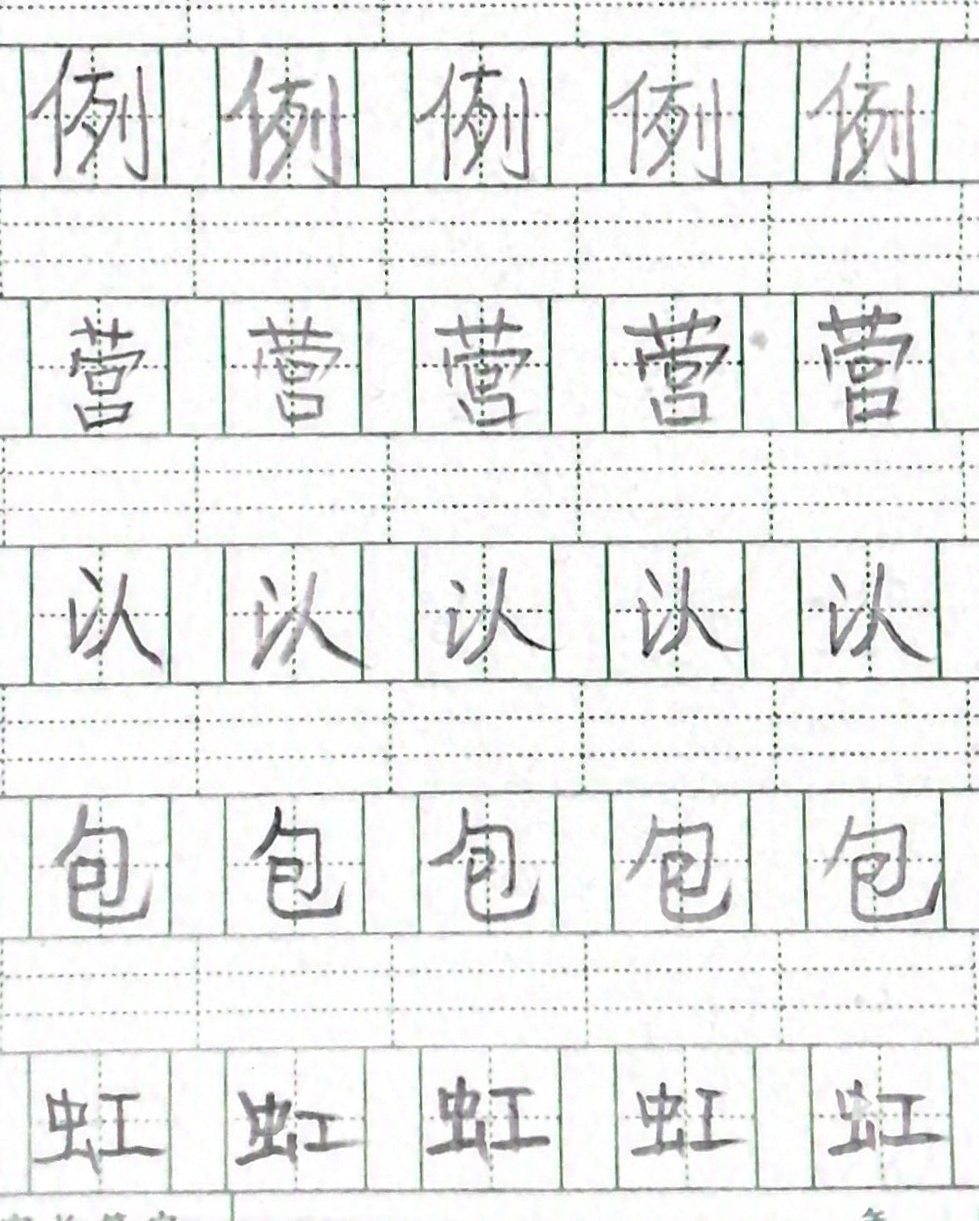 例例例例例
营营营营营
认认认认认
包包包包包
虹虹虹虹虹